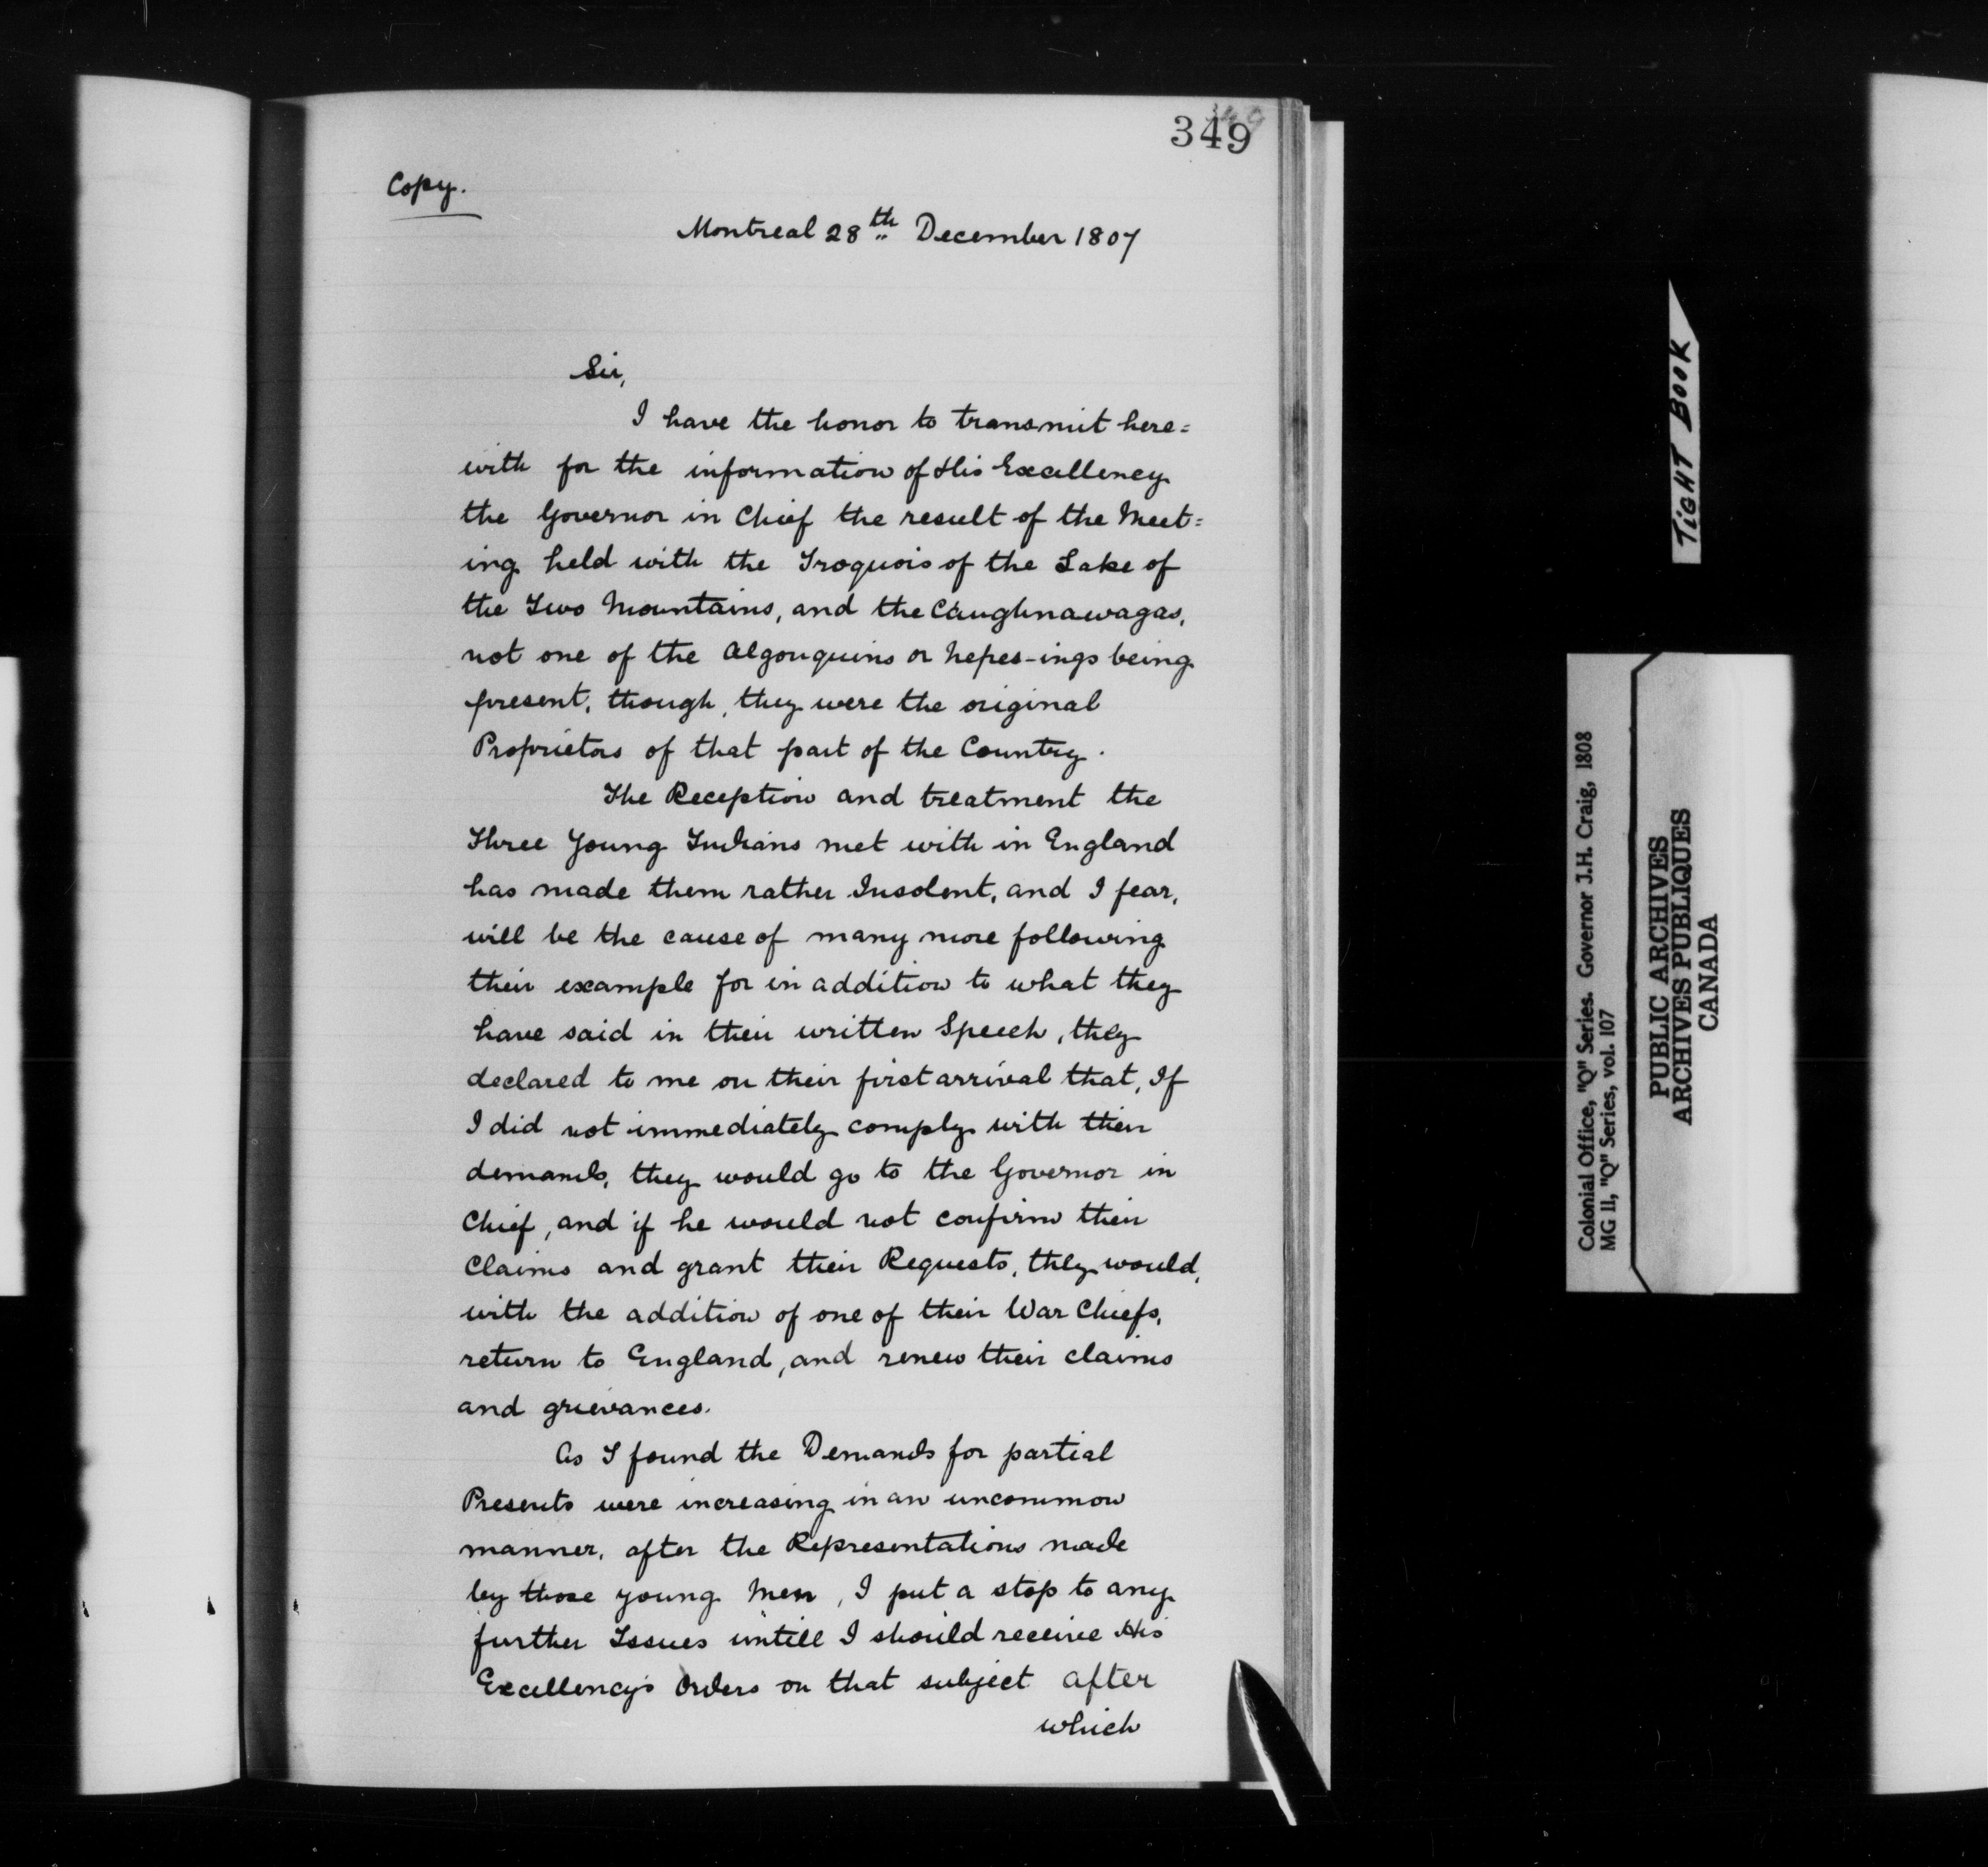 349
Copy.
Montreal 28th December 1807
Sir,
I have the honor to transmit here=
with for the information of His Excellency
the Governor in Chief the result of the Meet=
ing held with the Iroquois of the Lake of
the Two Mountains, and the Caughnawagas,
not one of the Algonquins or Nepes-ings being
present, though, they were the original
Proprietors of that part of the Country.
The Reception and treatment the
Three Young Indians met with in England
has made them rather Insolent, and I fear,
will be the cause of many more following
their example for in addition to what they
have said in their written Speech, they
declared to me on their first arrival that, If
I did not immediately comply with their
demands, they would go to the Governor in
Chief, and if he would not confirm their
Claims and grant their Requests, they would,
with the addition of one of their War Chiefs,
return to England, and renew their claims
and grievances.
As I found the Demands for partial
Presents were increasing in an uncommon
manner, after the Representations made
by those young Men, I put a stop to any
further Issues untill I should receive His
Excellency's Orders on that subject after
which
TIGHT BOOK
Colonial Office, "Q" Series. Governor J.H. Craig, 1808
MG 11, "Q" Series, vol. 107
PUBLIC ARCHIVES
ARCHIVES PUBLIQUES
CANADA